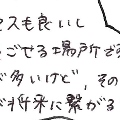 セスも良いし
ごせる場所が
が多いけど、その
が将来に繋がる